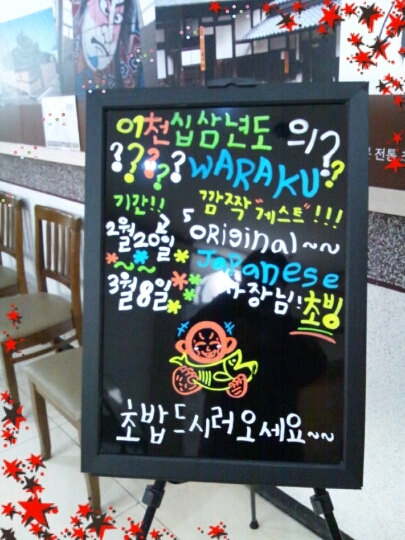 이천십삼년도 의?
????WARAKU?
기간!! 깜짝"게스트"!!!
2월20일 ORiginal~~
~~ Japanese
3월8일 사장님! 초빙
초밥드시러오세요~~
전통